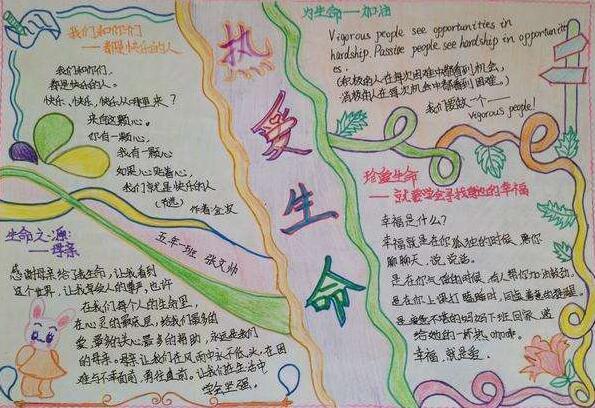 我们和你们
——都是快乐的人
我们和你们,
都是快乐的人。
快乐、快乐,快乐从哪里来?
来自这颗心。
你有一颗心
我有一颗心
如果心贴着心,
我们就是快乐的人
作者:金波
生命之源:
——母亲
五年一班 张文帅
感谢母亲给了我生命,让我看到
这个世界,让我享受人的尊严,也许
在我们每个人的生命里,
在心灵的最底层,给我们最多的
爱,最多的关心最多的帮助,永远是我们
的母亲。母亲让我们在风雨中永不低头,在困
难与不幸面前,勇往直前。让我们在生活中
学会坚强。
热
爱
生
命
为生命——加油
Vigorous people see opportunities in
hardship. Passive people see hardship in opportunity
es.
(积极的人在每次困难中都看到机会,
消极的人在每次机会中都看到困难。)
我们要做一个——
Vigorous people!
珍爱生命
——就要学会寻找身边的幸福
幸福是什么?
幸福就是在你孤独的时候,陪你
聊聊天、说说话。
是在你气馁的时候,有人帮你加油鼓劲。
是在你上课打瞌睡时,同桌善意的提醒。
妈妈下班回家,递
给她的一杯热
幸福,就是爱。